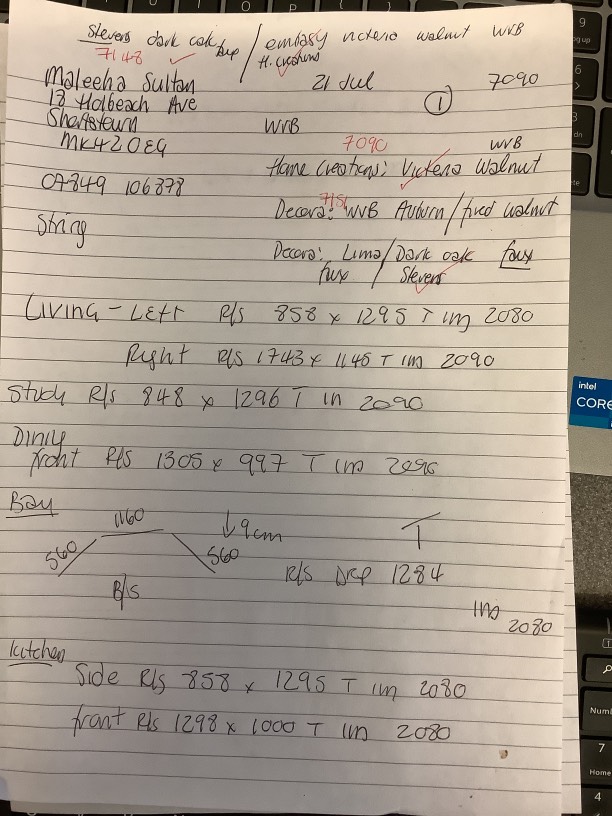 Stevens dark oak faux / embasy victora walnut WVB
7148
H. creations
Maleeha Sultan 21 Jul 7090
18 Holbeach Ave ①
Shortstown WVB
MK42 0EG 7090 WVB
Home Creations; Victora Walnut
07849 106878 7151
Decora: WVB Auburn / fired walnut
String
Decora: Lima / Dark oak faux
faux / Stevens
Living - Left R/s 858 x 1295 T im 2080
Right R/s 1743 x 1145 T im 2090
Study R/s 848 x 1296 T in 2090
Dining
front R/s 1305 x 997 T im 2090
Bay
1160
560 ↓9cm T
560
B/s R/s Drop 1284
im
2080
Kitchen
Side R/s 858 x 1295 T im 2080
front R/s 1298 x 1000 T im 2080
intel
CORE
9
6
7
Home
4
Num